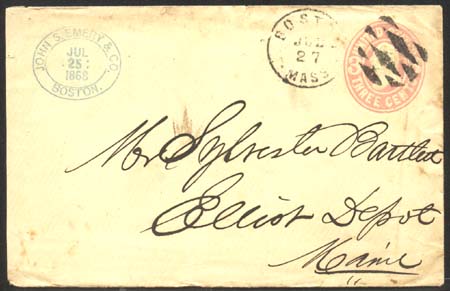 JOHN S. EMERY & CO.
JUL
25
1868
BOSTON.
BOSTON
JUL
27
MASS
THREE CENTS
Mr Sylvester Bartlett
Elliot Depot
Maine